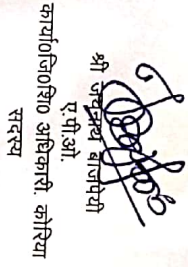 श्री जयनाथ बाजपेयी
ए.पी.ओ.
कार्या0जि0शि0 अधिकारी कोरिया
सदस्य